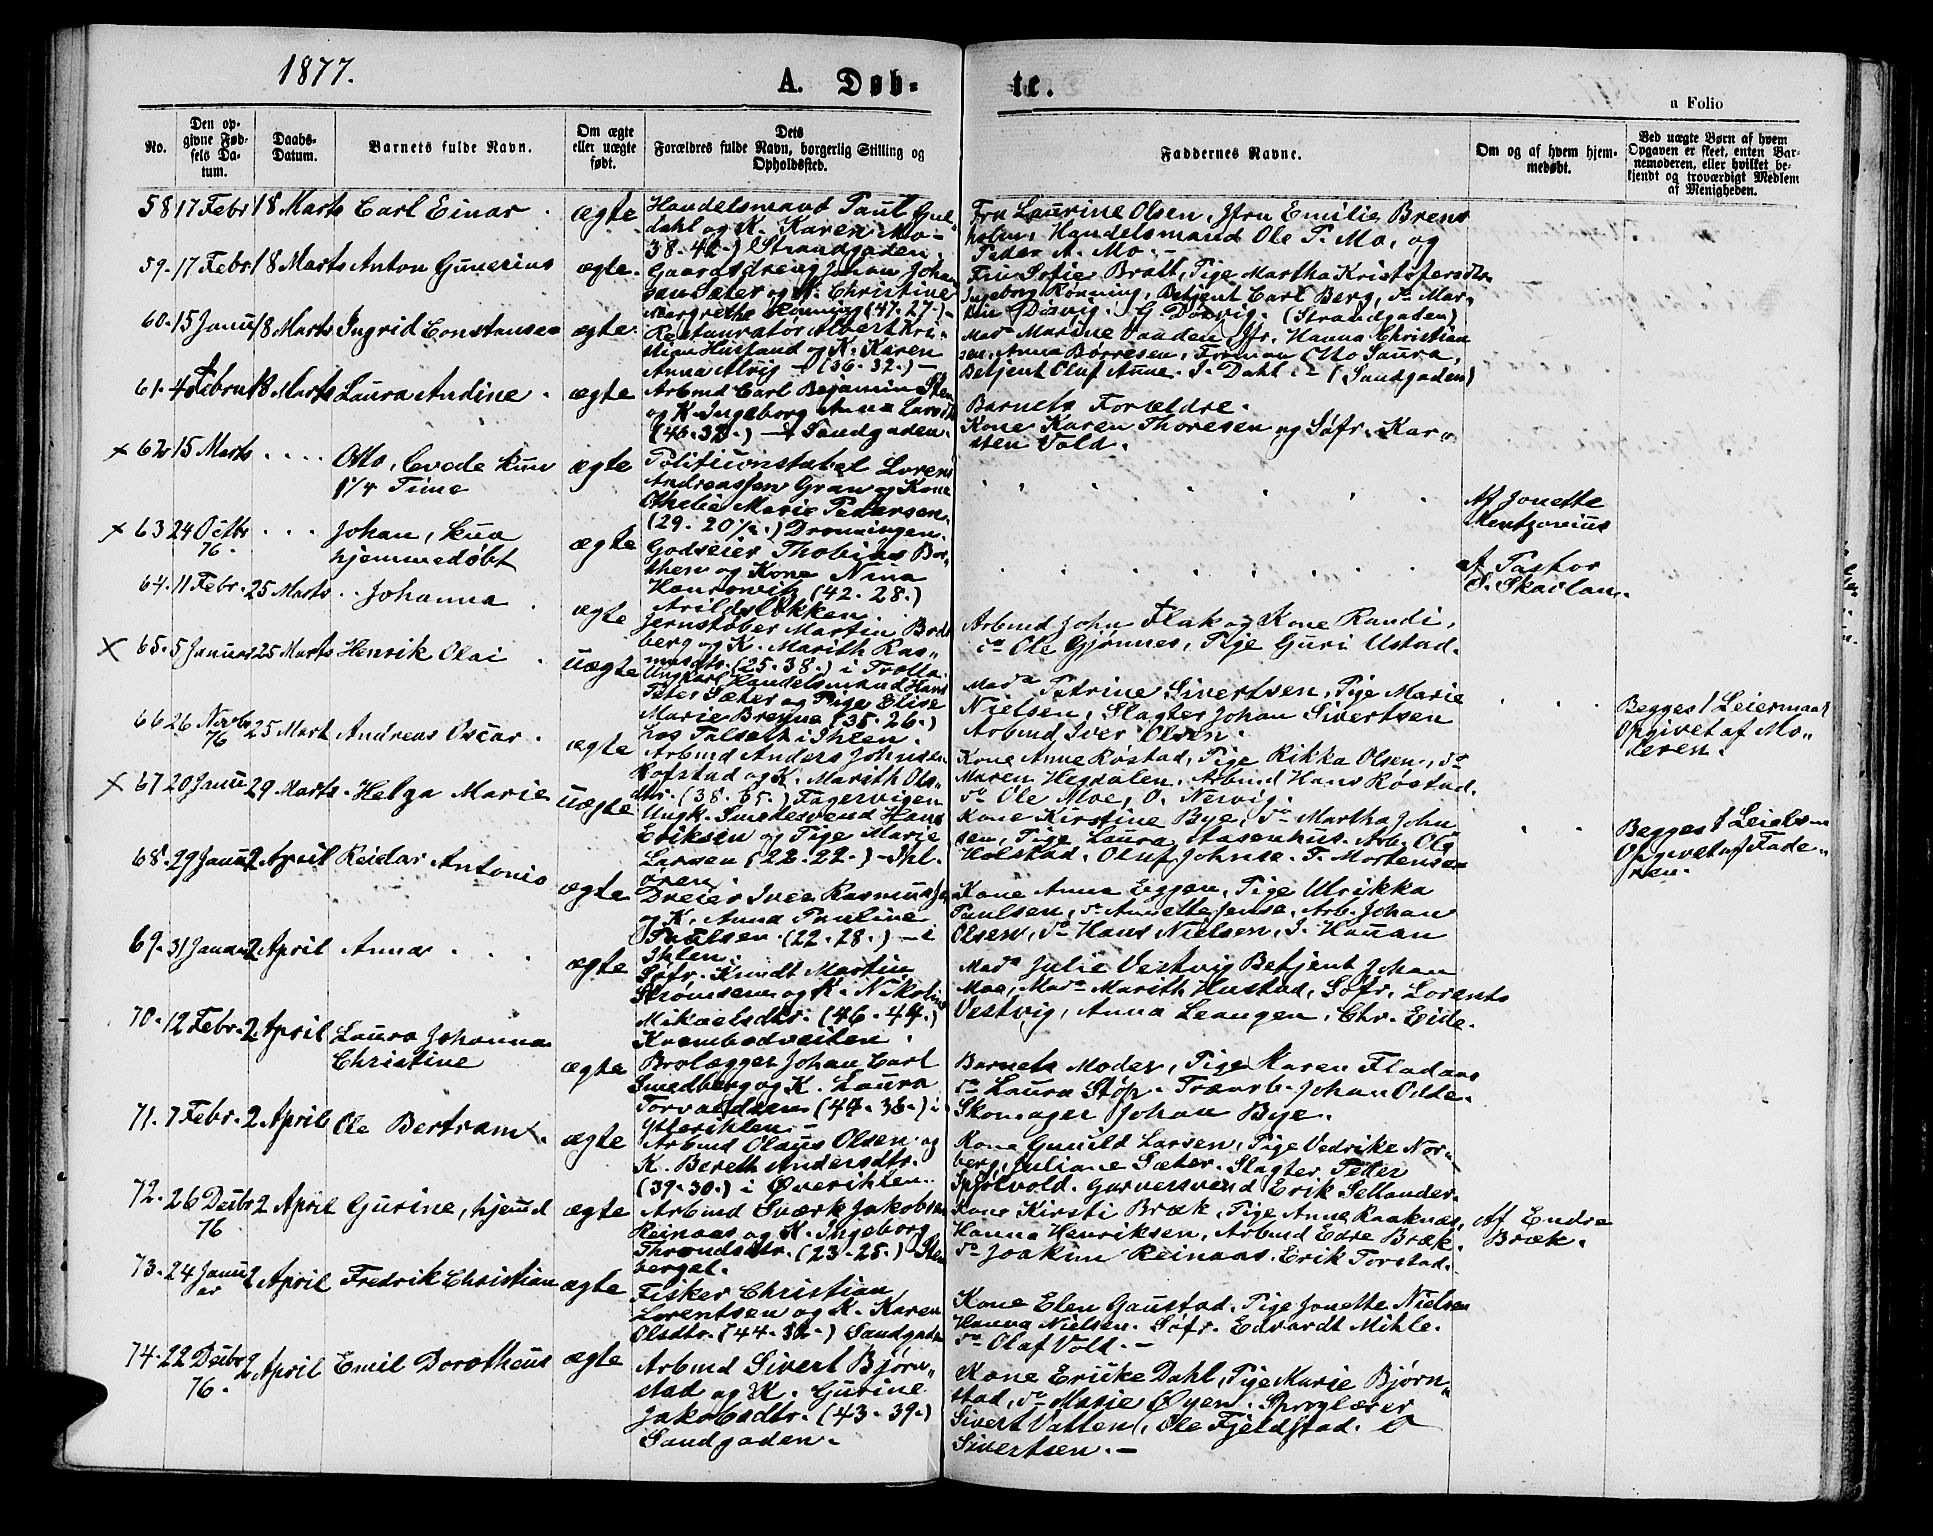 1877.
A. Døb-
te.
a Folio
No.
Den op-
givne Fød-
sels Da-
tum.
Daabs-
Datum.
Barnets fulde Navn.
Om ægte
eller uægte
født.
Dets
Forældres fulde Navn, borgerlig Stilling og
Opholdssted.
Faddernes Navne.
Om og af hvem hjem-
medøbt.
Ved uægte Børn af hvem
Opgaven er skeet, enten Bar-
nemoderen, eller hvilket be-
kjendt og troværdigt Medlem
af Menigheden.
58 17 Febr 18 Marts Carl Einar. ægte
Handelsmand Paul Gul-
dahl og K. Karen Mo-
38-42-) Strandgaden.
Fru Laurine Olsen, Jfru Emilie Brens
holm, Handelsmand Ole P. Mo, og
Peder A. Mo.-
59-17 Febr 18 Marts Anton Gunerius ægte-
Gaardsdreng Johan Johan
sen Sæter og K. Christine
Margrethe Rønning (47-27-)-
Fru Sofie Bratt, Pige Martha Kristofersdtr.
Ingeborg Rønning, Betjent Carl Berg, do Mar-
tin Døsvig. G. Døsvig. (Strandgaden)
60-15 Janu 18 Marts Ingrid Constanse ægte-
Restauratør Albert Kri-
stian Hustand og K. Karen
Anna Alvig - (36-32-)-
Mad. Marine Vaaden, Jfr. Hanna Christian
sen, Anna Børresen, Otto Saura,
Betjent Oluf Aune. I. Dahl.- (Sandgaden)
61-4 Februar 18 Marts Laura Andine. ægte
Arbmd Carl Benjamin Sten
og K. Ingeborg Anna Larsdtr
(46-38-) - i Sandgaden.
Barnets Forældre.
Kone Karen Thoresen og Søfr. Kar-
sten Vold.
x 62 15 Marts .... Otto, levede kun
1/4 Time ægte
Politiconstabel Lorens
Andreassen Gran og Kone
Othelie Marie Pedersen.
(29-20½-) Dronningen.
Af Jonette
Mentzonius
x 63 24 Octbr ... Johan, kun
76.
hjemmedøbt ægte
Godseier Thobias Bor-
then og Kone Nina
Hanrowitz (42-28-)
Arildsløkken.
af Pastor
S. Skavlan.
64-11 Febr. 25 Marts.. Johanna. ægte
Jernstøber Martin Bred
berg og K. Marith Ras-
musdtr. (25-38-) i Trolla.
Arbmd John Flak og Kone Randi,
do Ole Gjønnes, Pige Guri Ustad.
x 65-5 Januar 25 Marts Henrik Olai. uægte
Ungkarl Handelsmand Hans
Peter Sæter og Pige Elise
Marie Brenne (35-26-)
hos Falseth i Ihlen.
Mad. Petrine Sivertsen, Pige Marie
Nielsen, Slagter Johan Sivertsen
Arbmd Iver Olsen.
Begges 1 Leiermaal
Opgivet af Mo-
deren.
66 26 Novbr 25 Mart Andreas Oscar. ægte
76
Arbmd Anders Johnsen
Rofstad og K. Marith Ols-
dtr. (38-35-) Fagervigen
Kone Anne Røstad, Pige Rikka Olsen, do
Maren Hegdalen, Arbmd Hans Røstad.
do Ole Moe, O. Nervig.
x 67 20 Janu 29 Marts. Helga Marie uægte
Ungk. Smedesvend Hans
Eriksen og Pige Marie
Larsen (22-22-) - Ihl-
øren.
Kone Kirstine Bye, do Martha John
sen, Pige Laura Aasenhus. Arb. Ole
Holstad. Oluf Johnse. P. Mortensen
Begges 1 Leierm
Opgivet af Fade-
ren.
68-29 Janu 2 April Reidar Antonio ægte
Dreier Iver Rasmussen
og K. Anna Pauline
Paulsen. (22-28-) - i
Ihlen.
Kone Anna Eggen, Pige Ulrikka
Paulsen, do Annette Jense, Arb. Johan
Olsen, do Hans Nielsen, I. Hauan
69-31 Januar 2 April Anna... ægte
Søfr. Knudt Martin
Strømsen og K. Nikoline
Mikaelsdtr. (46-44-)
Krambodveiten.
Mad. Julie Vestvig Betjent Johan
Moe, Mad. Marith Hustad, Søfr. Lorents
Vestvig, Anna Leangen, Chr. Eide.
70-12 Febr. 2 April Laura Johanna
Christine ægte
Brolægger Johan Carl
Smedberg og K. Laura
Torvaldsen (44-36-) i
Ytterihlen.-
Barnets Moder, Pige Karen Fladaas
do Laura Støp. Træarb. Johan Odde.
Skomager Johan Bye.
71-7 Febr. 2 April Ole Bertram. ægte
Arbmd Olaus Olsen og
K. Bereth Andersdtr.
(39-30-) i Øverihlen.
Kone Gunild Larsen, Pige Vedrike Nor-
berg, Juliane Sæter. Slagter Peter
Spjelvold. Garversvend Erik Sellander.
72-26 Decbr 2 April Gurine, hjemd ægte
76
Arbmd Sværk Jakobsen
Reinaas og K. Ingeborg
Throndsdtr. (23-25-) Sten
berget.
Kone Kirsti Bræk, Pige Anne Raaknæs,
Hanna Henriksen, Arbmd Edre Bræk.
do Joakim Reinaas. Erik Torstad.
Af Endre
Bræk.
73-24 Janu 2 April Fredrik Christian ægte
ar
Fisker Christian
Lorentsen og K. Karen
Olsdtr. (44-38-) Sandgaden
Kone Elen Gaustad. Pige Jonette Nielsen
Hanna Nielsen. Søfr. Edvardt Mihle.
do Olaf Vold.-
74-22 Decbr 2 April Emil Dorotheus ægte
76.
Arbmd Sivert Bjørn-
stad og K. Gurine
Jakobsdtr. (43-39-)
Sandgaden-
Kone Ericke Dahl, Pige Marie Bjørn
stad, do Marie Øyen. Sproglærer
Sivert Vatten, Ole Fjeldstad. O
Sivertsen.-